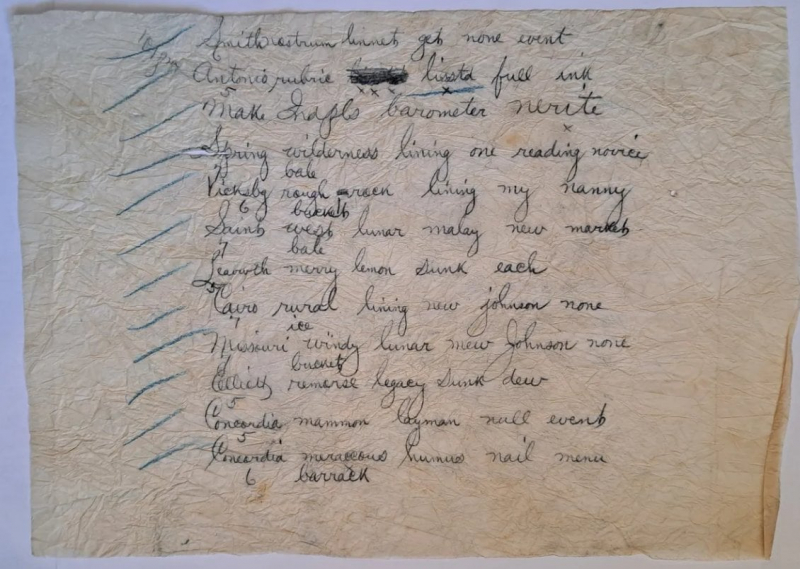 Smith nostrum linnet get none event
Antonio rubric lissta full ink
5
Make Indpls barometer nerite
Spring wilderness lining one reading novice
bale
Vicksbg rough rock lining my nanny
6 bucket
Saint west lunar malay new market
7 bale
Leavwth merry lemon sunk each
5
Cairo rural lining new johnson none
7 ice
Missouri windy lunar mew Johnson none
bucket
Elliott remorse legacy sunk dew
5
Concordia mammon layman null event
5
Concordia humus nail menu
6 barrack